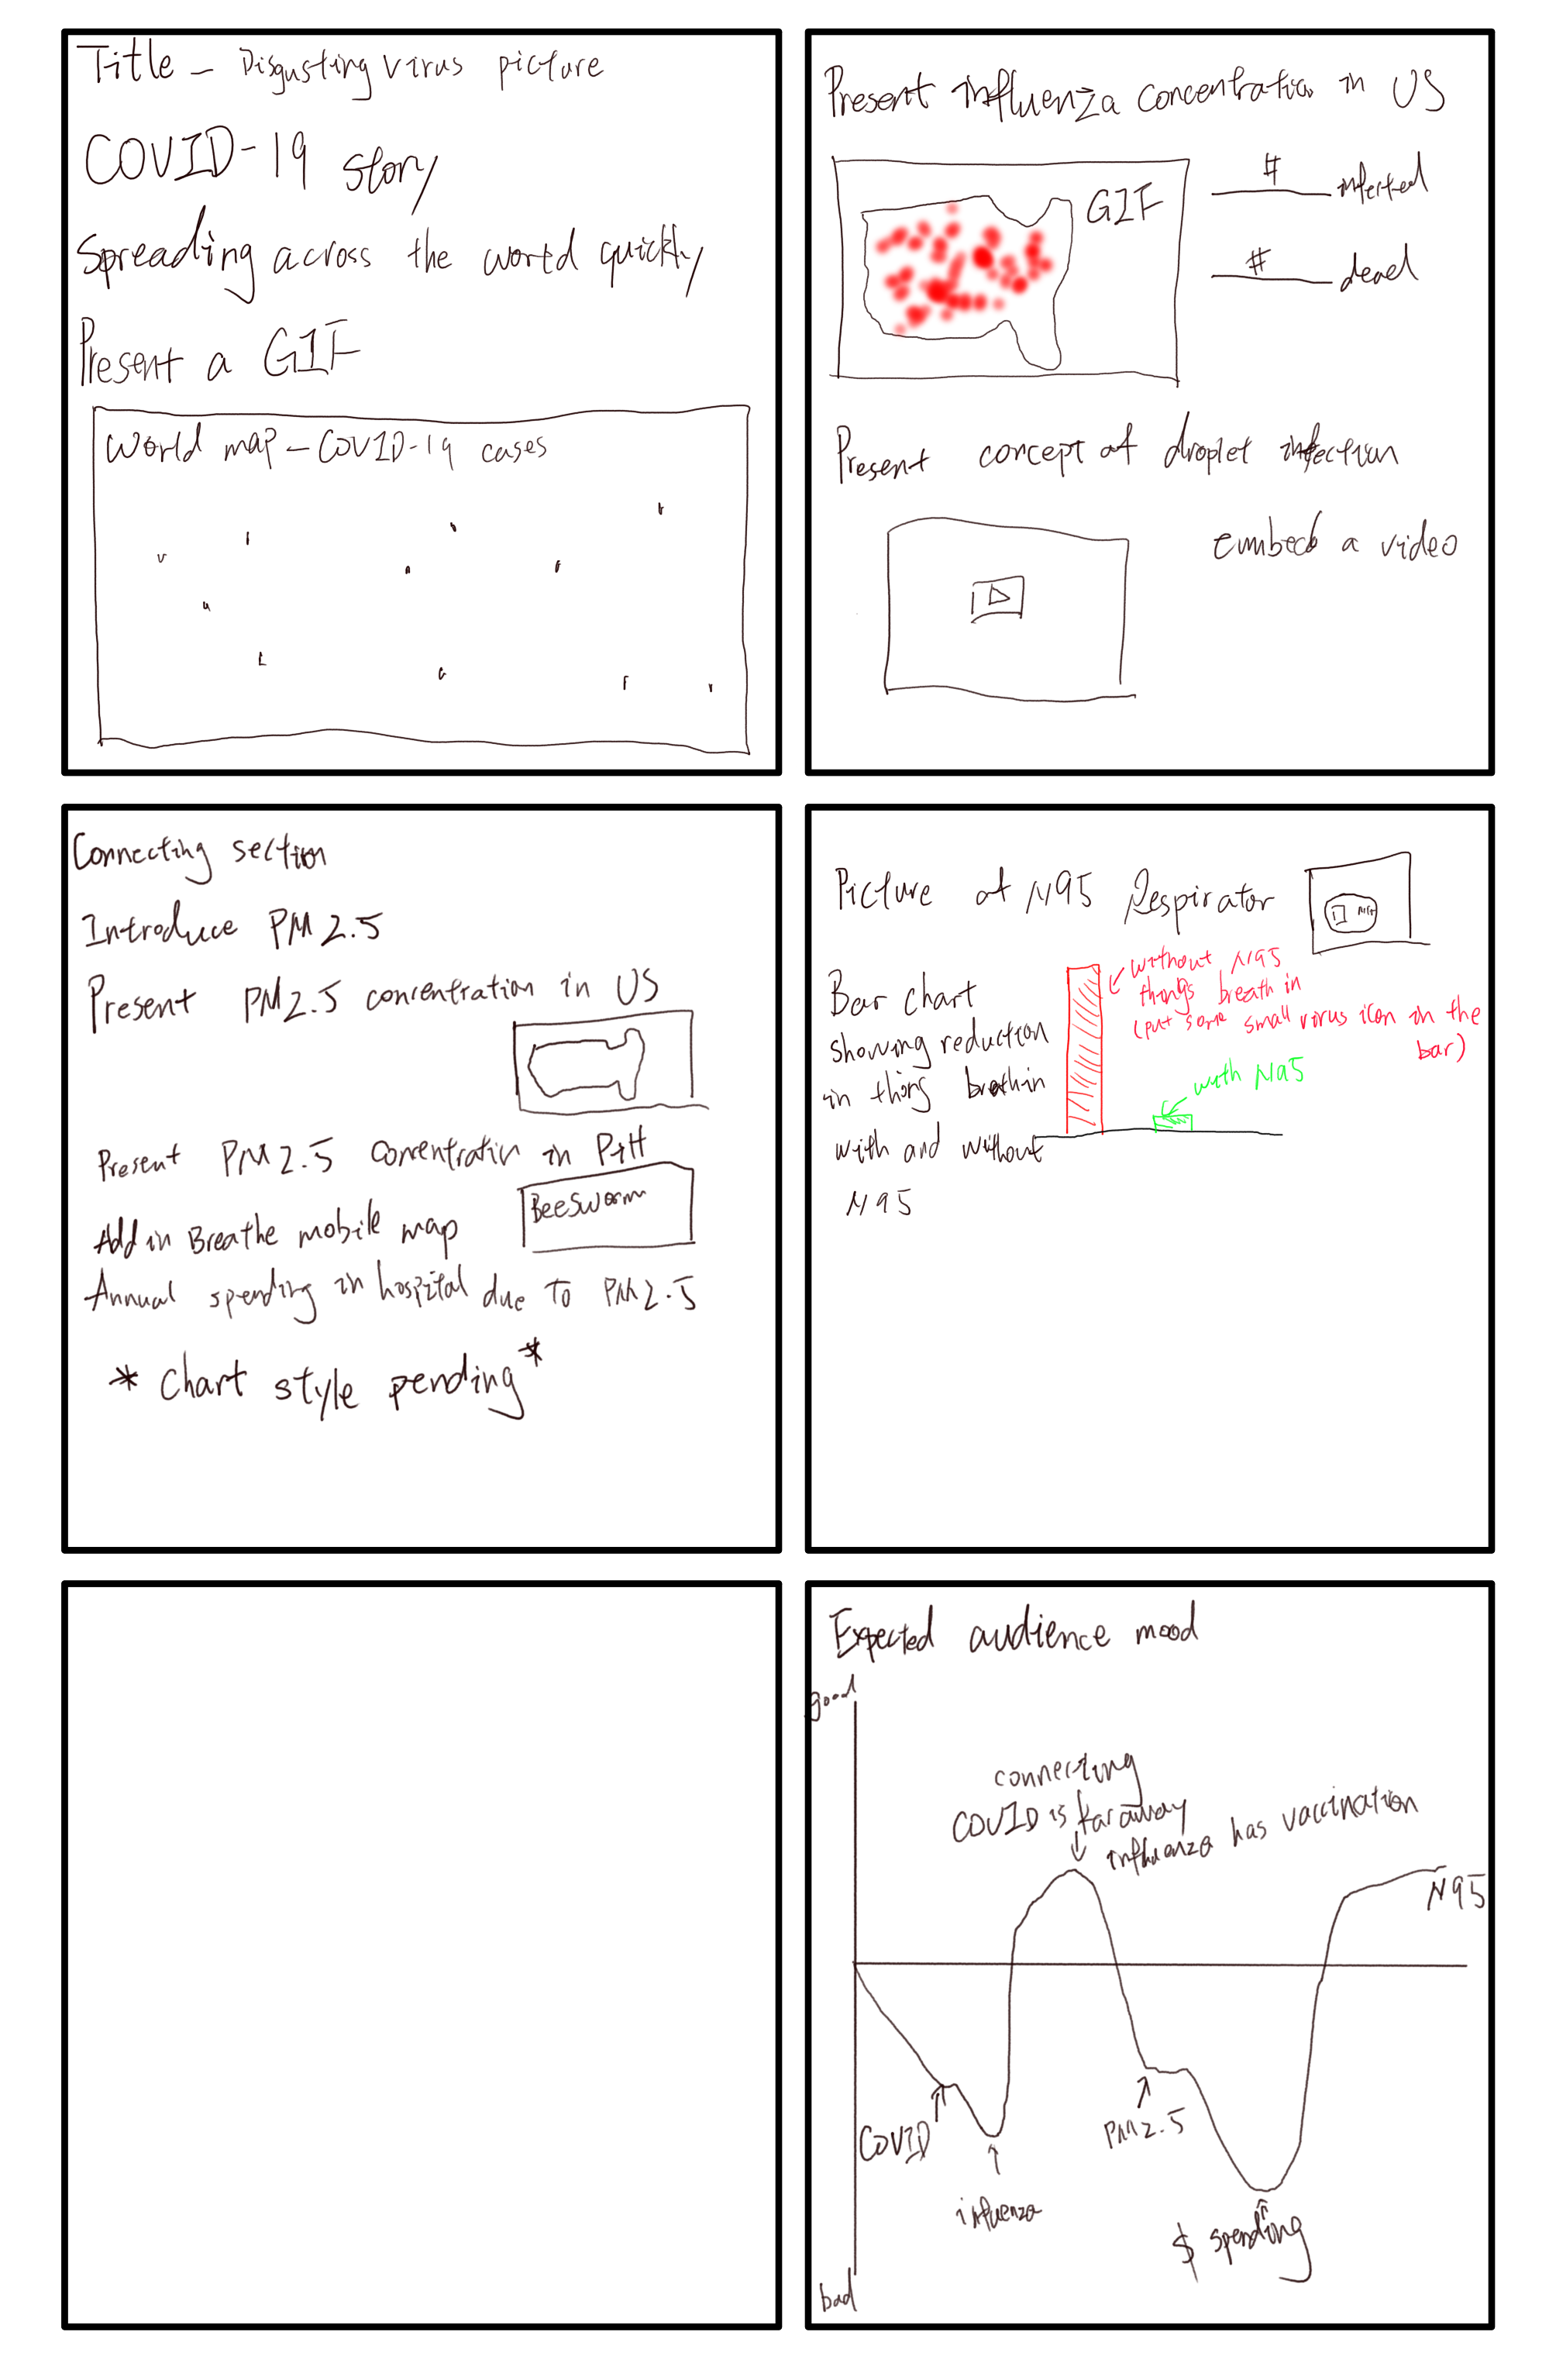 Title – Disgusting virus picture
COVID-19 story
Spreading across the world quickly
Present a GIF
World map – COVID-19 cases
Present influenza concentration in US
GIF
# infected
# dead
Present concept of droplet infection
embed a video
Connecting section
Introduce PM 2.5
Present PM2.5 concentration in US
Present PM2.5 concentration in PitH
Add in Breathe mobile map
BeeSworm
Annual spending in hospital due to PM2.5
* Chart style pending *
Picture of N95 Respirator
Bar chart
showing reduction
in things breathin
with and without
N95
without N95
things breath in
(put some small virus icon in the
bar)
with N95
Expected audience mood
good
connecting
COVID is far away
influenza has vaccination
N95
COVID
influenza
PM2.5
$ spending
bad